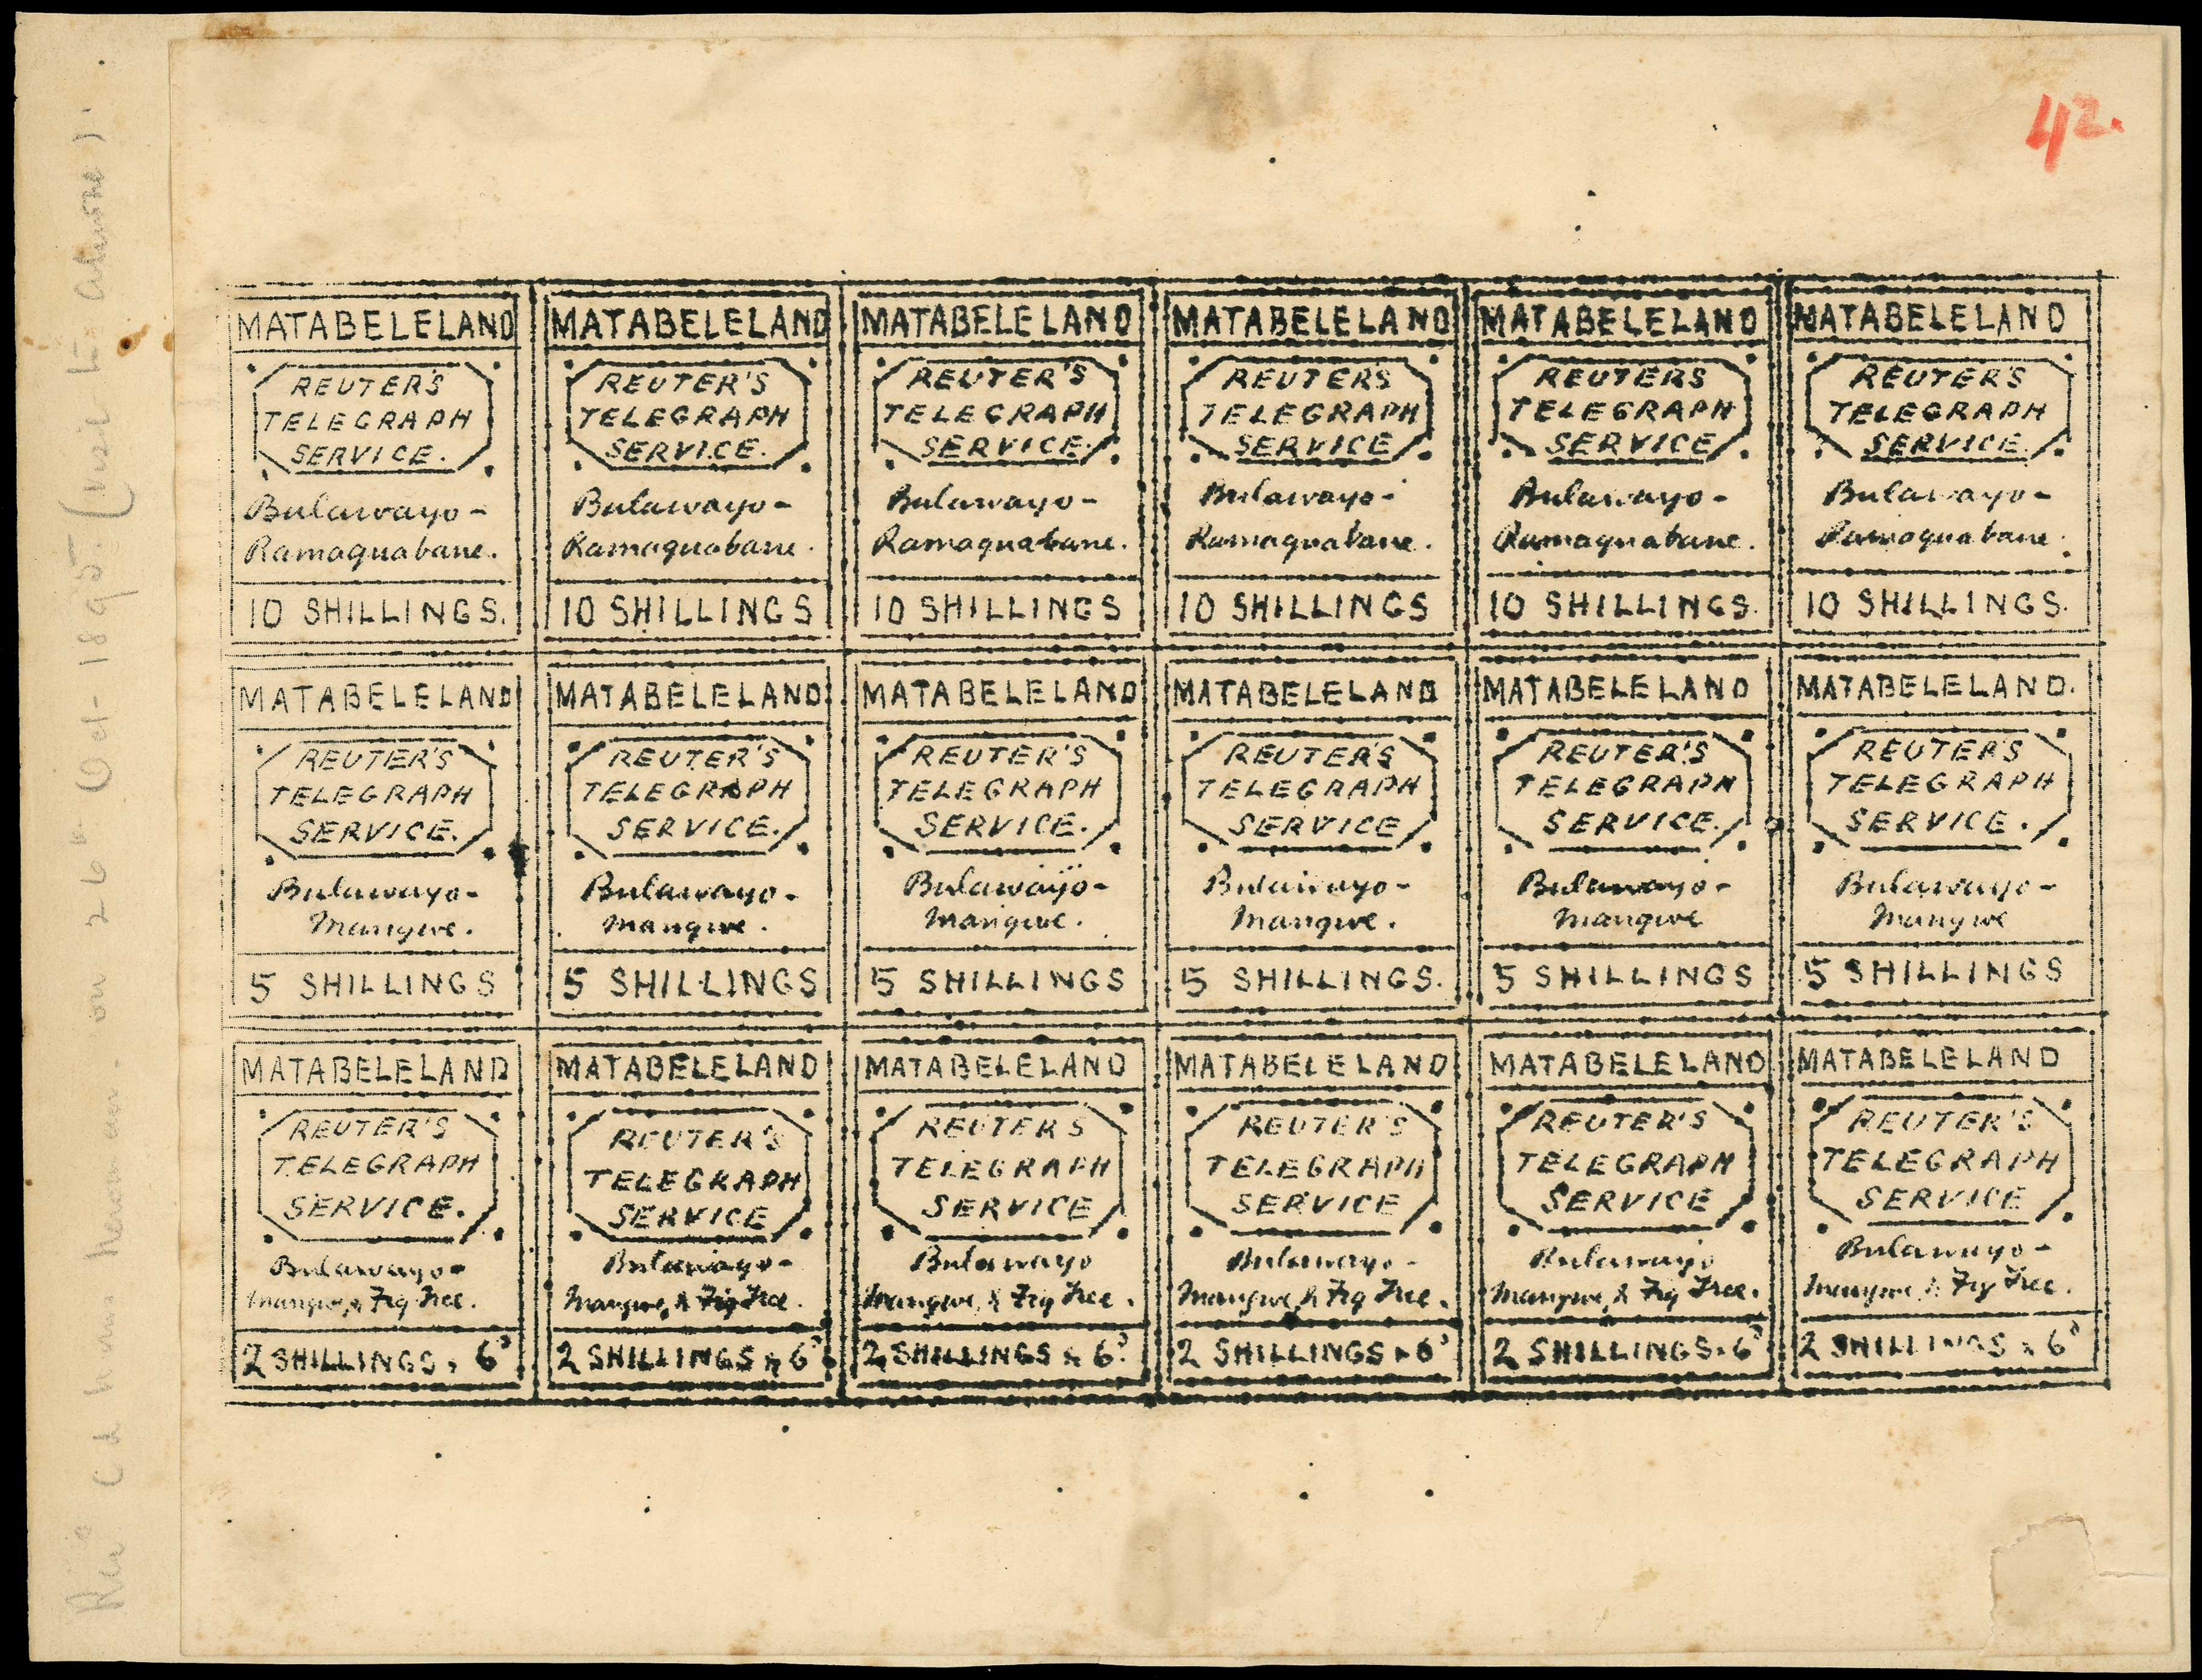 42.
MATABELELAND MATABELELAND MATABELELAND MATABELELAND MATABELELAND MATABELELAND
REUTER'S REUTER'S REUTER'S REUTERS REUTERS REUTER'S
TELEGRAPH TELEGRAPH TELEGRAPH TELEGRAPH TELEGRAPH TELEGRAPH
SERVICE. SERVICE. SERVICE. SERVICE SERVICE SERVICE.
Bulawayo- Bulawayo- Bulawayo- Bulawayo- Bulawayo- Bulawayo-
Ramaquabane. Ramaquabane. Ramaquabane. Ramaquabane. Ramaquabane. Ramaquabane.
10 SHILLINGS. 10 SHILLINGS 10 SHILLINGS 10 SHILLINGS 10 SHILLINGS. 10 SHILLINGS.
MATABELELAND MATABELELAND MATABELELAND MATABELELAND MATABELELAND MATABELELAND.
REUTER'S REUTER'S REUTER'S REUTER'S REUTER'S REUTER'S
TELEGRAPH TELEGRAPH TELEGRAPH TELEGRAPH TELEGRAPH TELEGRAPH
SERVICE. SERVICE. SERVICE. SERVICE SERVICE. SERVICE.
Bulawayo- Bulawayo- Bulawayo- Bulawayo- Bulawayo- Bulawayo-
Mangwe. Mangwe. Mangwe. Mangwe. Mangwe Mangwe
5 SHILLINGS 5 SHILLINGS 5 SHILLINGS 5 SHILLINGS. 5 SHILLINGS 5 SHILLINGS
MATABELELAND MATABELELAND MATABELELAND MATABELELAND MATABELELAND MATABELELAND
REUTER'S REUTER'S REUTERS REUTER'S REUTER'S REUTER'S
TELEGRAPH TELEGRAPH TELEGRAPH TELEGRAPH TELEGRAPH TELEGRAPH
SERVICE. SERVICE SERVICE SERVICE SERVICE SERVICE
Bulawayo- Bulawayo- Bulawayo Bulawayo- Bulawayo Bulawayo-
Mangwe, & Fig Tree. Mangwe, & Fig Tree. Mangwe, & Fig Tree. Mangwe, & Fig Tree. Mangwe, & Fig Tree. Mangwe & Fig Tree.
2 SHILLINGS & 6D 2 SHILLINGS & 6D 2 SHILLINGS & 6D 2 SHILLINGS & 6D 2 SHILLINGS & 6D 2 SHILLINGS & 6D
on 26th Oct-1895.